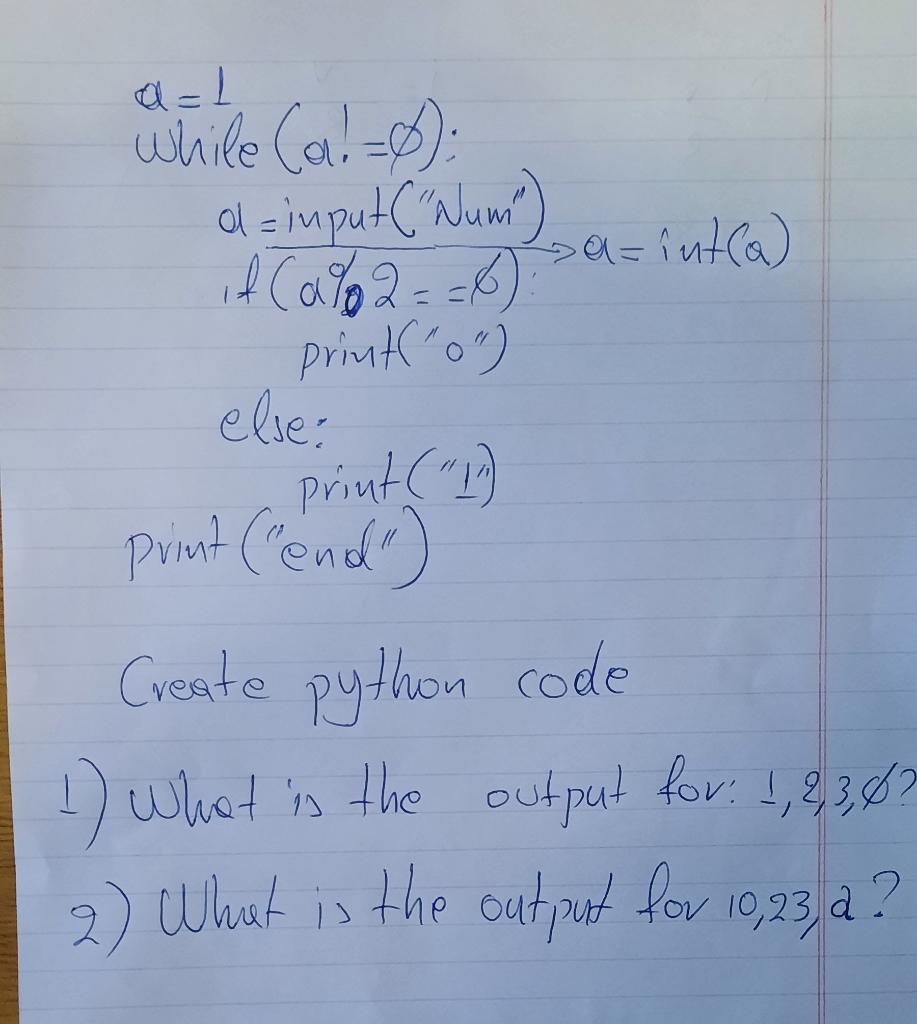 a=1
while (a!=0):
a=input("Num")
→a=int(a)
if(a%2==0):
print("o")
else:
print("1")
print("end")
Create python code
1) What is the output for: 1,2,3,0?
2) What is the output for 10,23,a?